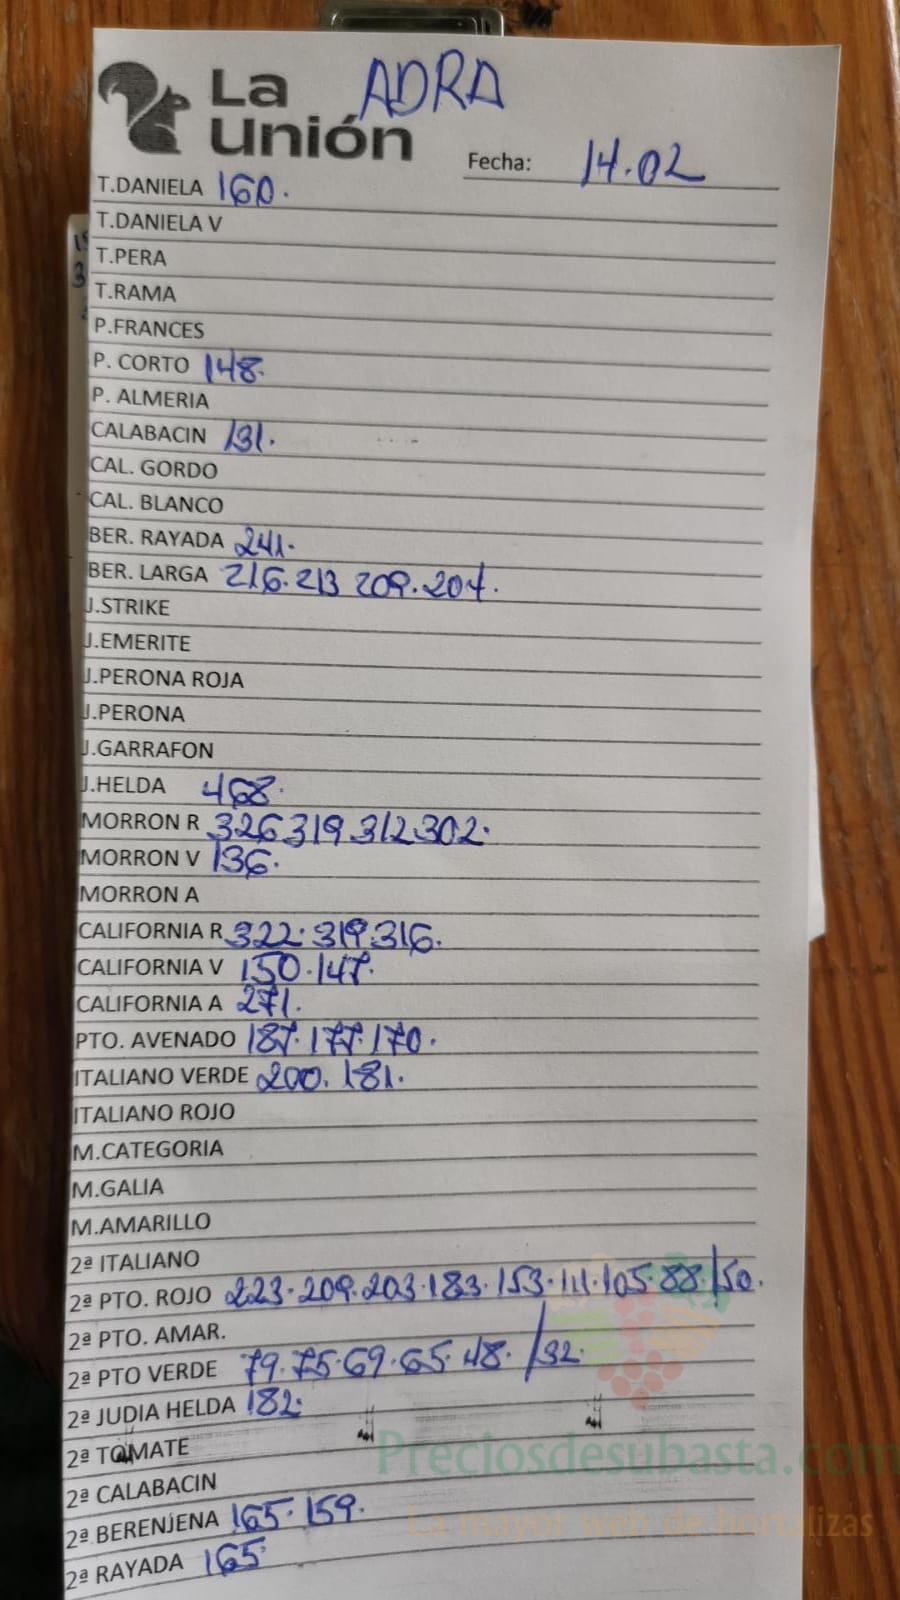 La Unión ADRA
Fecha: 14.02
T.DANIELA 160.
T.DANIELA V
T.PERA
T.RAMA
P.FRANCES
P. CORTO 148.
P. ALMERIA
CALABACIN 131.
CAL. GORDO
CAL. BLANCO
BER. RAYADA 241.
BER. LARGA 216.213 209.204.
J.STRIKE
J.EMERITE
J.PERONA ROJA
J.PERONA
J.GARRAFON
J.HELDA 468.
MORRON R 326 319 312 302.
MORRON V 136.
MORRON A
CALIFORNIA R 322.319.316.
CALIFORNIA V 150.147.
CALIFORNIA A 271.
PTO. AVENADO 187.177.170.
ITALIANO VERDE 200.181.
ITALIANO ROJO
M.CATEGORIA
M.GALIA
M.AMARILLO
2ª ITALIANO
2ª PTO. ROJO 223.209.203.183.153.111.105.88./50.
2ª PTO. AMAR.
2ª PTO VERDE 79.75.69.65.48./32.
2ª JUDIA HELDA 182.
2ª TOMATE
Preciosdesubasta.com
2ª CALABACIN
2ª BERENJENA 165.159.
La mayor web de hortalizas
2ª RAYADA 165